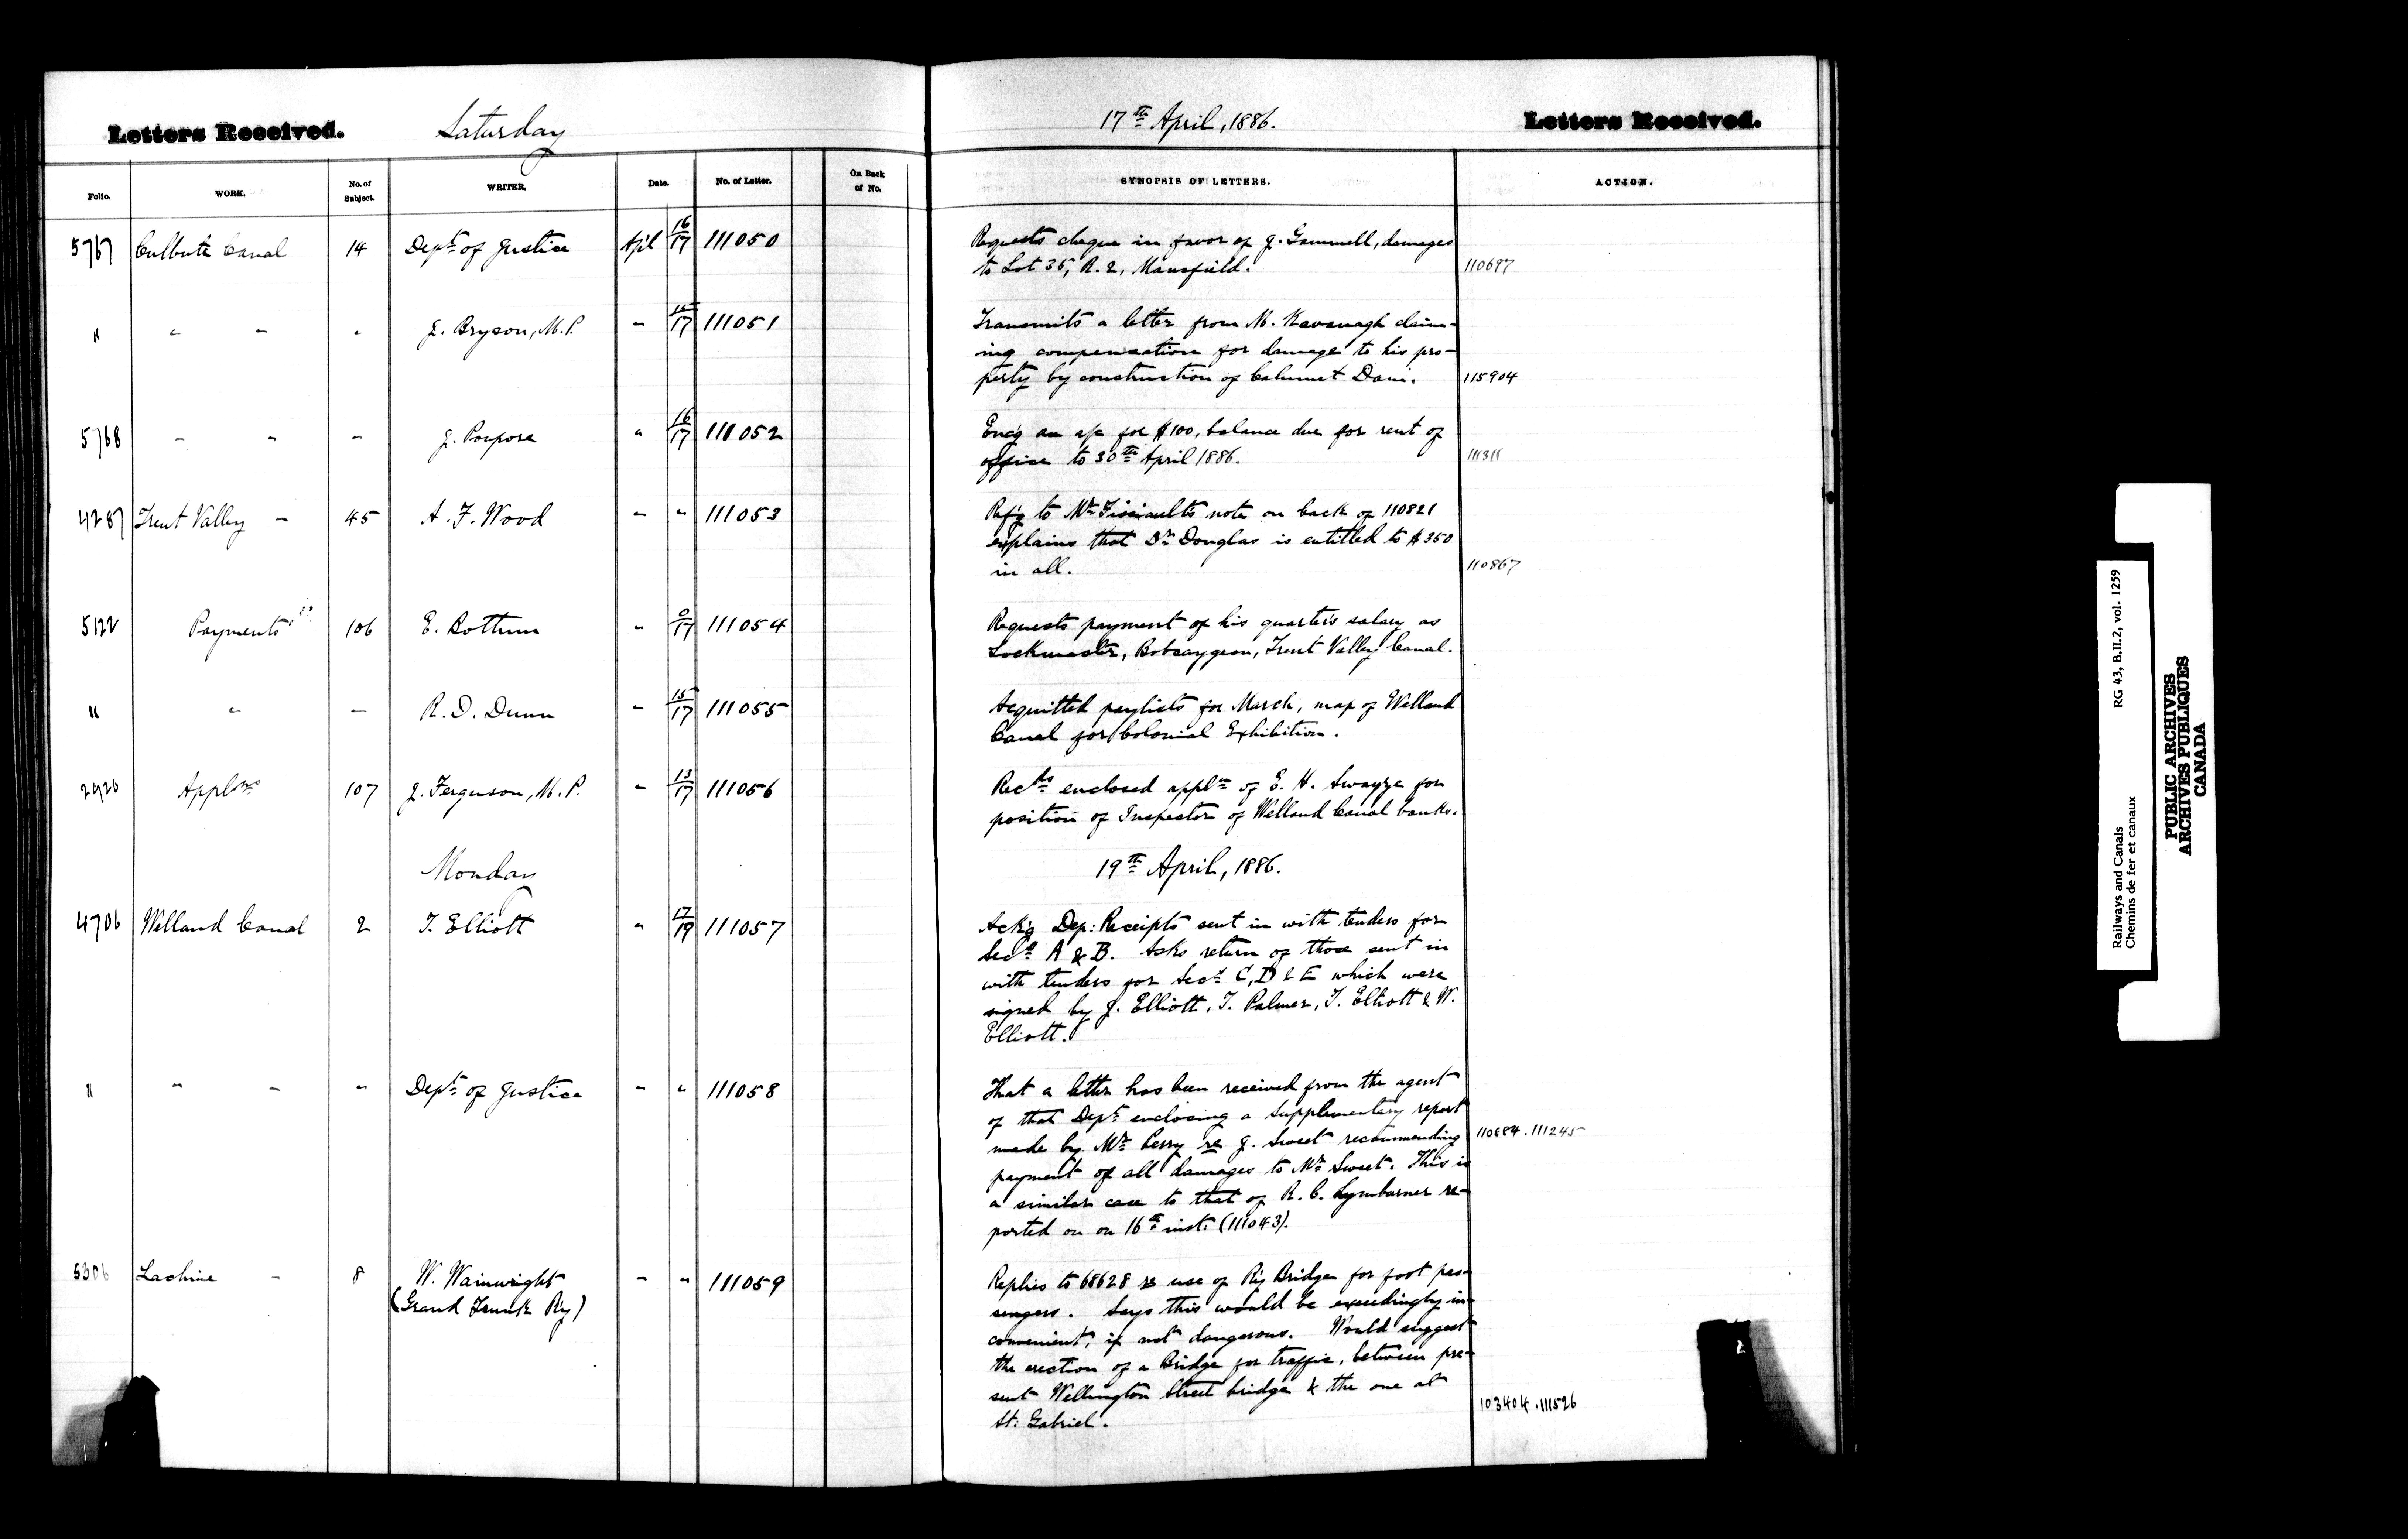 Letters Received. Saturday 17th April, 1886. Letters Received.
Folio. WORK. No. of Subject. WRITER, Date. No. of Letter. On Back of No. SYNOPSIS OF LETTERS. ACTION.
5767 Culbute Canal 14 Dept. of Justice Apl 16/17 111050 Requests cheque in favor of J. Gammell, damages
to Lot 35, R. 2, Mansfield. 110697
" " " " J. Bryson, M.P. " 15/17 111051 Transmits a letter from M. Kavanagh claim-
ing compensation for damage to his pro-
perty by construction of Calumet Dam. 115904
5768 " " " J. Poupore " 16/17 111052 Encg an a/c for $100, balance due for rent of
office to 30th April 1886. 111311
4287 Trent Valley " 45 A. F. Wood " " 111053 Refg to Mr Tissiault's note on back of 110821
explains that Dr Douglas is entitled to $350
in all. 110867
5122 Payments 106 E. Bottum " 0/17 111054 Requests payment of his quarter's salary as
Lockmaster, Bobcaygeon, Trent Valley Canal.
" " " R. D. Dunn " 15/17 111055 Acquitted paylists for March, map of Welland
Canal for Colonial Exhibition.
2926 Applns 107 J. Ferguson, M.P. " 13/17 111056 Recds enclosed appln of E. H. Swayze for
position of Inspector of Welland Canal banks.
Monday 19th April, 1886.
4706 Welland Canal 2 T. Elliott " 17/19 111057 Ackg Dep: Receipts sent in with tenders for
Secs A & B. Asks return of those sent in
with tenders for Secs C, D & E which were
signed by J. Elliott, T. Palmer, T. Elliott & W.
Elliott.
" " " " Dept. of Justice " " 111058 That a letter has been received from the agent
of that Dept enclosing a supplementary report
made by Mr Perry re J. Sweet recommending 110684.111245
payment of all damages to Mr Sweet. This is
a similar case to that of R. C. Lymburner re-
ported on on 16th inst. (111043).
5306 Lachine " 8 W. Wainwright " " 111059 Replies to 68628 re use of Ry Bridge for foot pas-
(Grand Trunk Ry) sengers. Says this would be exceedingly in-
convenient, if not dangerous. Would suggest
the erection of a Bridge for traffic, between pre-
sent Wellington Street bridge & the one at
St: Gabriel. 103404.111526
Railways and Canals RG 43, B.II.2, vol. 1259
Chemins de fer et canaux
PUBLIC ARCHIVES
ARCHIVES PUBLIQUES
CANADA